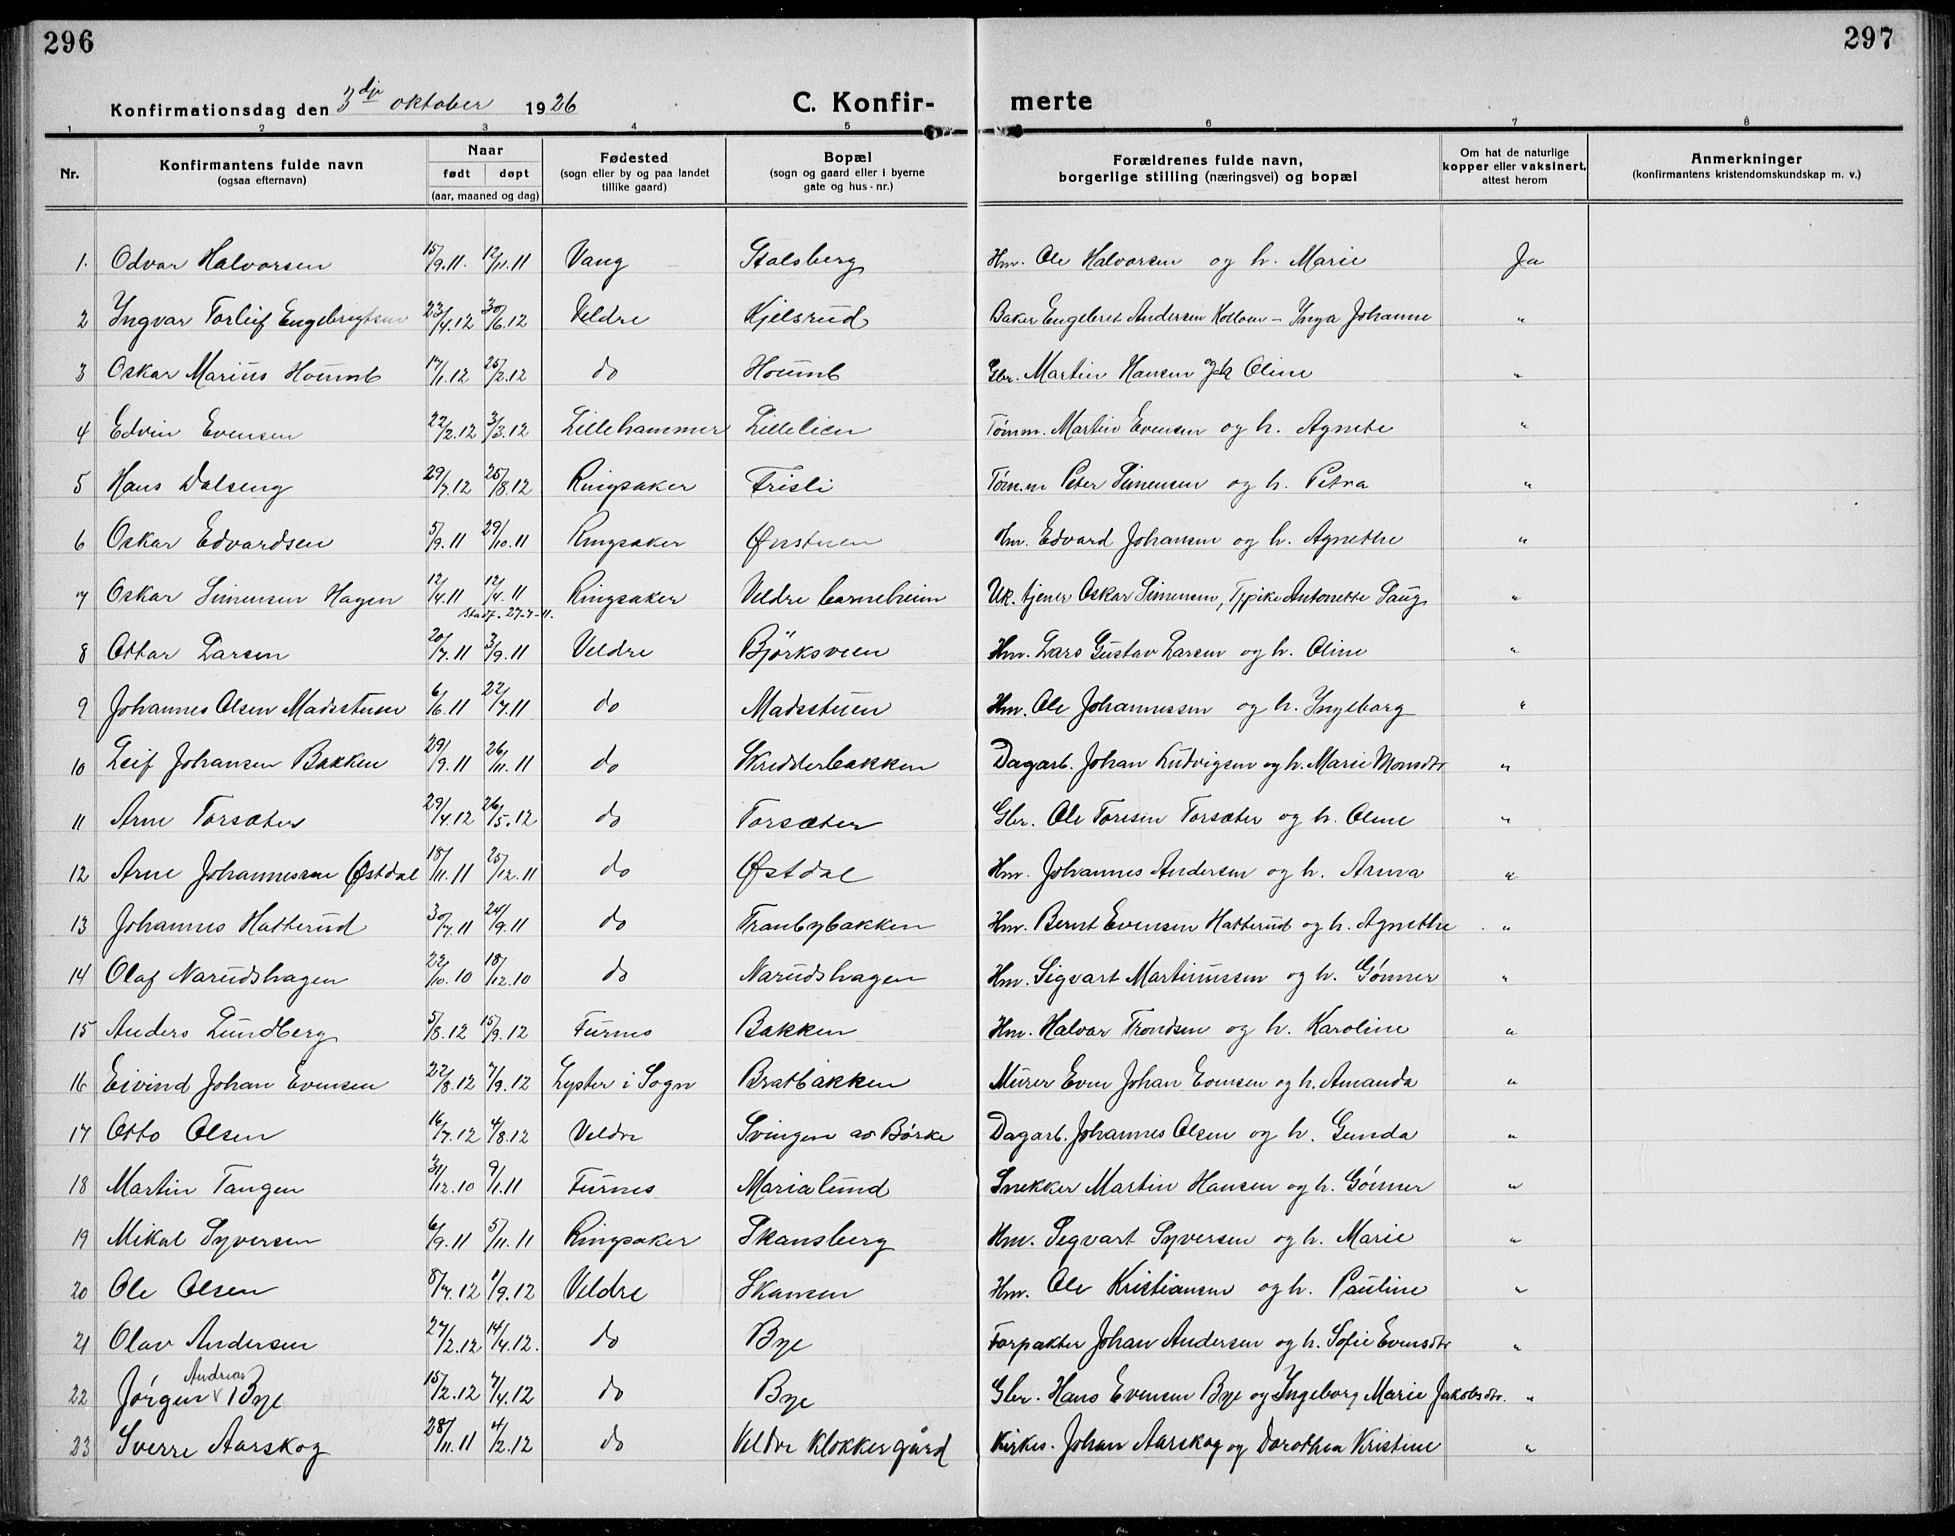 296
297
Konfirmationsdag den 3dje oktober 1926
C. Konfir-
merte
1 2 3 4 5 6 7 8
Nr. | Konfirmantens fulde navn (ogsaa efternavn) | Naar født døpt (aar, maaned og dag) | Fødested (sogn eller by og paa landet tillike gaard) | Bopæl (sogn og gaard eller i byerne gate og hus-nr.) | Forældrenes fulde navn, borgerlige stilling (næringsvei) og bopæl | Om hat de naturlige kopper eller vaksinert, attest herom | Anmerkninger (konfirmantens kristendomskundskap m. v.)
1. Odvar Halvorsen 15/9.11. 12/11.11 Vang Stalsberg Hm. Ole Halvorsen og h. Marie Ja
2 Yngvar Torleif Engebrigtsen 23/4.12 30/6.12 Veldre Kjelsrud Baker Engebret Andersen Kolloen - Inga Johanne "
3 Oskar Marius Houmb 17/1.12 25/2.12 do Houmb Gbr. Martin Hansen og h Oline "
4 Edvin Evensen 22/2.12 3/3.12 Lillehammer Lillelien Tømm. Martin Evensen og h. Agnete "
5 Hans Dalseng 29/7.12 25/8.12 Ringsaker Frisli Tømm Peter Simensen og h. Petra "
6 Oskar Edvardsen 5/9.11 29/10.11 Ringsaker Ønstuen Hm. Edvard Johansen og h. Agnethe "
7 Oskar Simensen Hagen 12/4.11 12/4.11 Ringsaker Veldre barneheim Uk. tjener Oskar Simensen, Tj.pike Antonette Saug "
stadf. 27-7-11.
8 Ottar Larsen 20/7.11 3/9.11 Veldre Bjørksveen Hm. Lars Gustav Larsen og h. Oline "
9 Johannes Olsen Madsstuen 6/6.11 22/7.11 do Madsstuen Hm. Ole Johannessen og h. Ingeborg "
10 Leif Johansen Bakken 29/9.11 26/11.11 do Skredderbakken Dagarb. Johan Ludvigsen og h. Marie Monsdtr "
11 Arne Torsæter 29/4.12 26/5.12 do Torsæter Gbr. Ole Toresen Torsæter og h. Oline "
12 Arne Johannessen Østdal 18/11.11 25/12.11 do Østdal Hm. Johannes Andersen og h. Anna "
13 Johannes Hatterud 30/7.11 24/9.11 do Tranbybakken Hm. Bernt Evensen Hatterud og h. Agnethe "
14 Olaf Narudshagen 22/10.10 18/12.10 do Narudshagen Hm. Sigvart Martinussen og h. Gønner "
15 Anders Lundberg 5/8.12 15/9.12 Furnes Bakken Hm. Halvar Trondsen og h. Karoline "
16 Eivind Johan Evensen 22/8.12 7/9.12 Lyster i Sogn Bratbakken Murer Even Johan Evensen og h. Amanda "
17 Otto Olsen 16/7.12 4/8.12 Veldre Svingen av Børke Dagarb. Johannes Olsen og h. Gunda "
18 Martin Tangen 31/12.10 9/1.11 Furnes Marialund Snekker Martin Hansen og h. Gønner "
19 Mikal Syversen 6/9.11 5/11.11 Ringsaker Skansberg Hm. Segvart Syversen og h. Marie "
20 Ole Olsen 8/7.12 1/9.12 Veldre Skansen Hm. Ole Kristiansen og h. Pauline "
21 Olav Andersen 27/2.12 14/4.12. do Bye Forpakter Johan Andersen og h. Sofie Evensdtr "
22 Jørgen Andreas Bye 15/2.12 7/4.12 do Bye Gbr. Hans Evensen Bye og Ingeborg Marie Jakobsdtr. "
23 Sverre Aarskog 28/11.11 4/2.12 do Veldre Klokkergård Kirkes. Johan Aarskog og Dorothea Kristine "